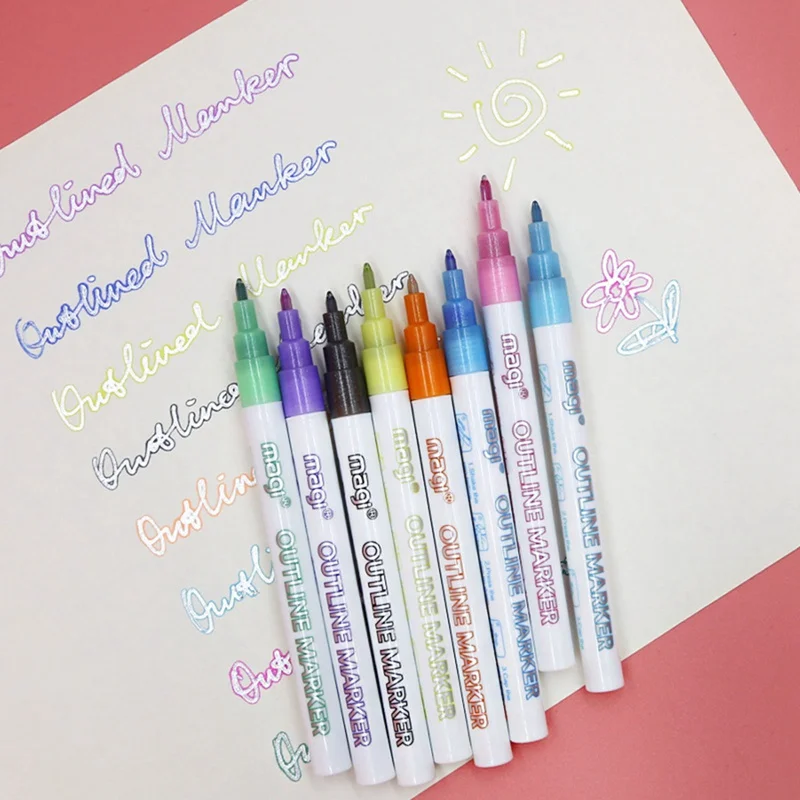 Outlined Marker
Outlined Marker
Outlined Marker
Outlined Marker
Outlin
Out
Out
Out
magi OUTLINE MARKER
magi OUTLINE MARKER
magi OUTLINE MARKER
magi OUTLINE MARKER
magi OUTLINE MARKER
magi OUTLINE MARKER
magi OUTLINE MARKER
magi OUTLINE MARKER